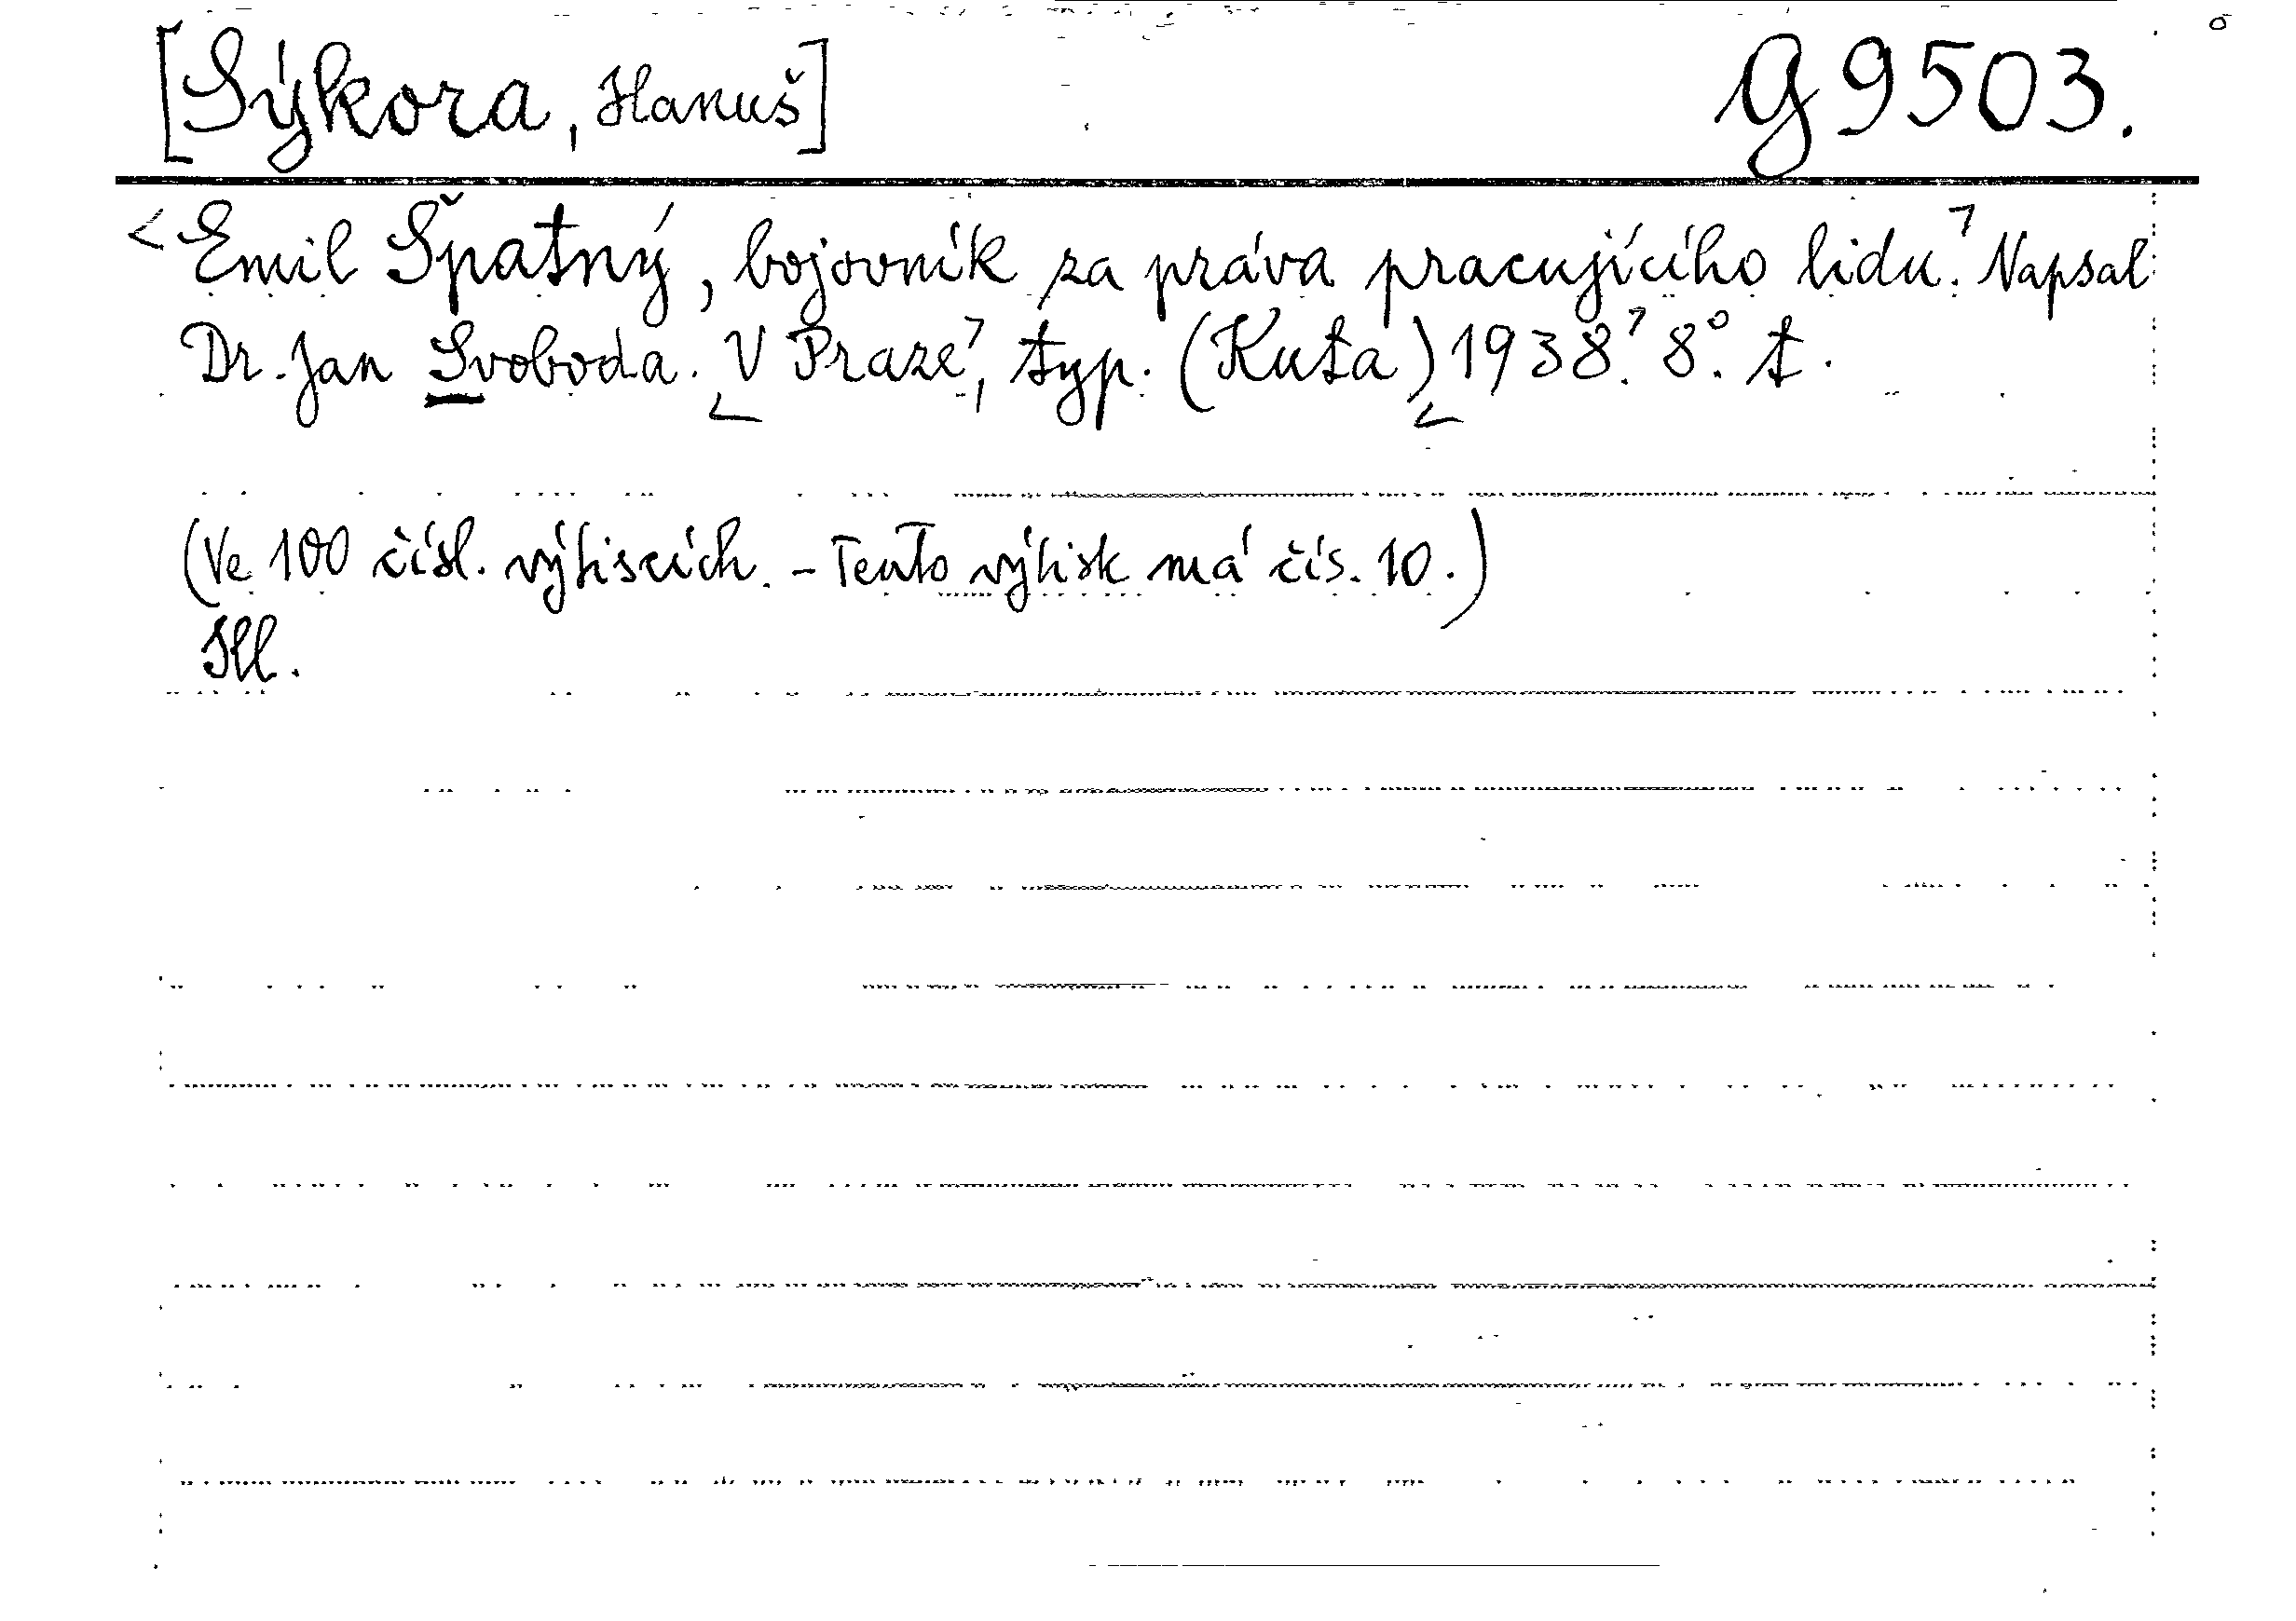 [Sýkora, Hanuš] G 9503.
<Emil Špatný, bojovník za práva pracujícího lidu.> Napsal
Dr. Jan Svoboda. <V Praze>, typ. (Kuťa) <1938.> 8°. t.
(Ve 100 čísl. výtiscích. – Tento výtisk má čís. 10.)
Ill.